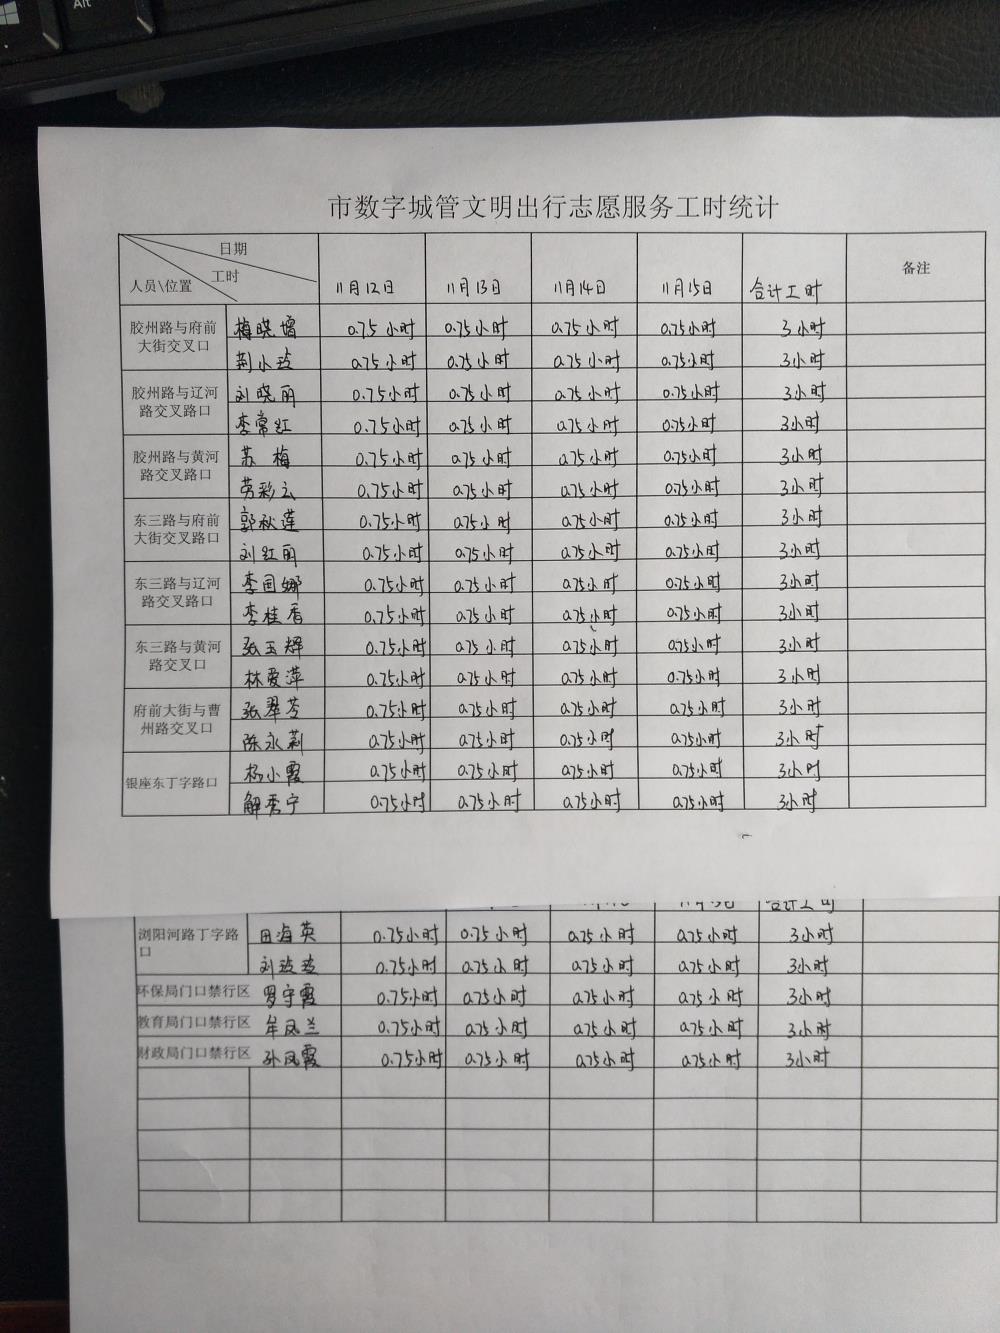 Alt
市数字城管文明出行志愿服务工时统计
日期
工时
人员\位置
11月12日 11月13日 11月14日 11月15日 合计工时 备注
胶州路与府前
大街交叉口
梅晓增 0.75小时 0.75小时 0.75小时 0.75小时 3小时
荆小玲 0.75小时 0.75小时 0.75小时 0.75小时 3小时
胶州路与辽河
路交叉路口
刘晓丽 0.75小时 0.75小时 0.75小时 0.75小时 3小时
李常红 0.75小时 0.75小时 0.75小时 0.75小时 3小时
胶州路与黄河
路交叉路口
苏梅 0.75小时 0.75小时 0.75小时 0.75小时 3小时
劳彩云 0.75小时 0.75小时 0.75小时 0.75小时 3小时
东三路与府前
大街交叉路口
郭秋莲 0.75小时 0.75小时 0.75小时 0.75小时 3小时
刘红丽 0.75小时 0.75小时 0.75小时 0.75小时 3小时
东三路与辽河
路交叉路口
李国娜 0.75小时 0.75小时 0.75小时 0.75小时 3小时
李桂香 0.75小时 0.75小时 0.75小时 0.75小时 3小时
东三路与黄河
路交叉口
张玉辉 0.75小时 0.75小时 0.75小时 0.75小时 3小时
林爱萍 0.75小时 0.75小时 0.75小时 0.75小时 3小时
府前大街与曹
州路交叉口
张翠芳 0.75小时 0.75小时 0.75小时 0.75小时 3小时
陈永莉 0.75小时 0.75小时 0.75小时 0.75小时 3小时
银座东丁字路口
杨小霞 0.75小时 0.75小时 0.75小时 0.75小时 3小时
解秀宁 0.75小时 0.75小时 0.75小时 0.75小时 3小时
合计工时
浏阳河路丁字路
口
田海英 0.75小时 0.75小时 0.75小时 0.75小时 3小时
刘玲玲 0.75小时 0.75小时 0.75小时 0.75小时 3小时
环保局门口禁行区 罗守霞 0.75小时 0.75小时 0.75小时 0.75小时 3小时
教育局门口禁行区 牟凤兰 0.75小时 0.75小时 0.75小时 0.75小时 3小时
财政局门口禁行区 孙凤霞 0.75小时 0.75小时 0.75小时 0.75小时 3小时